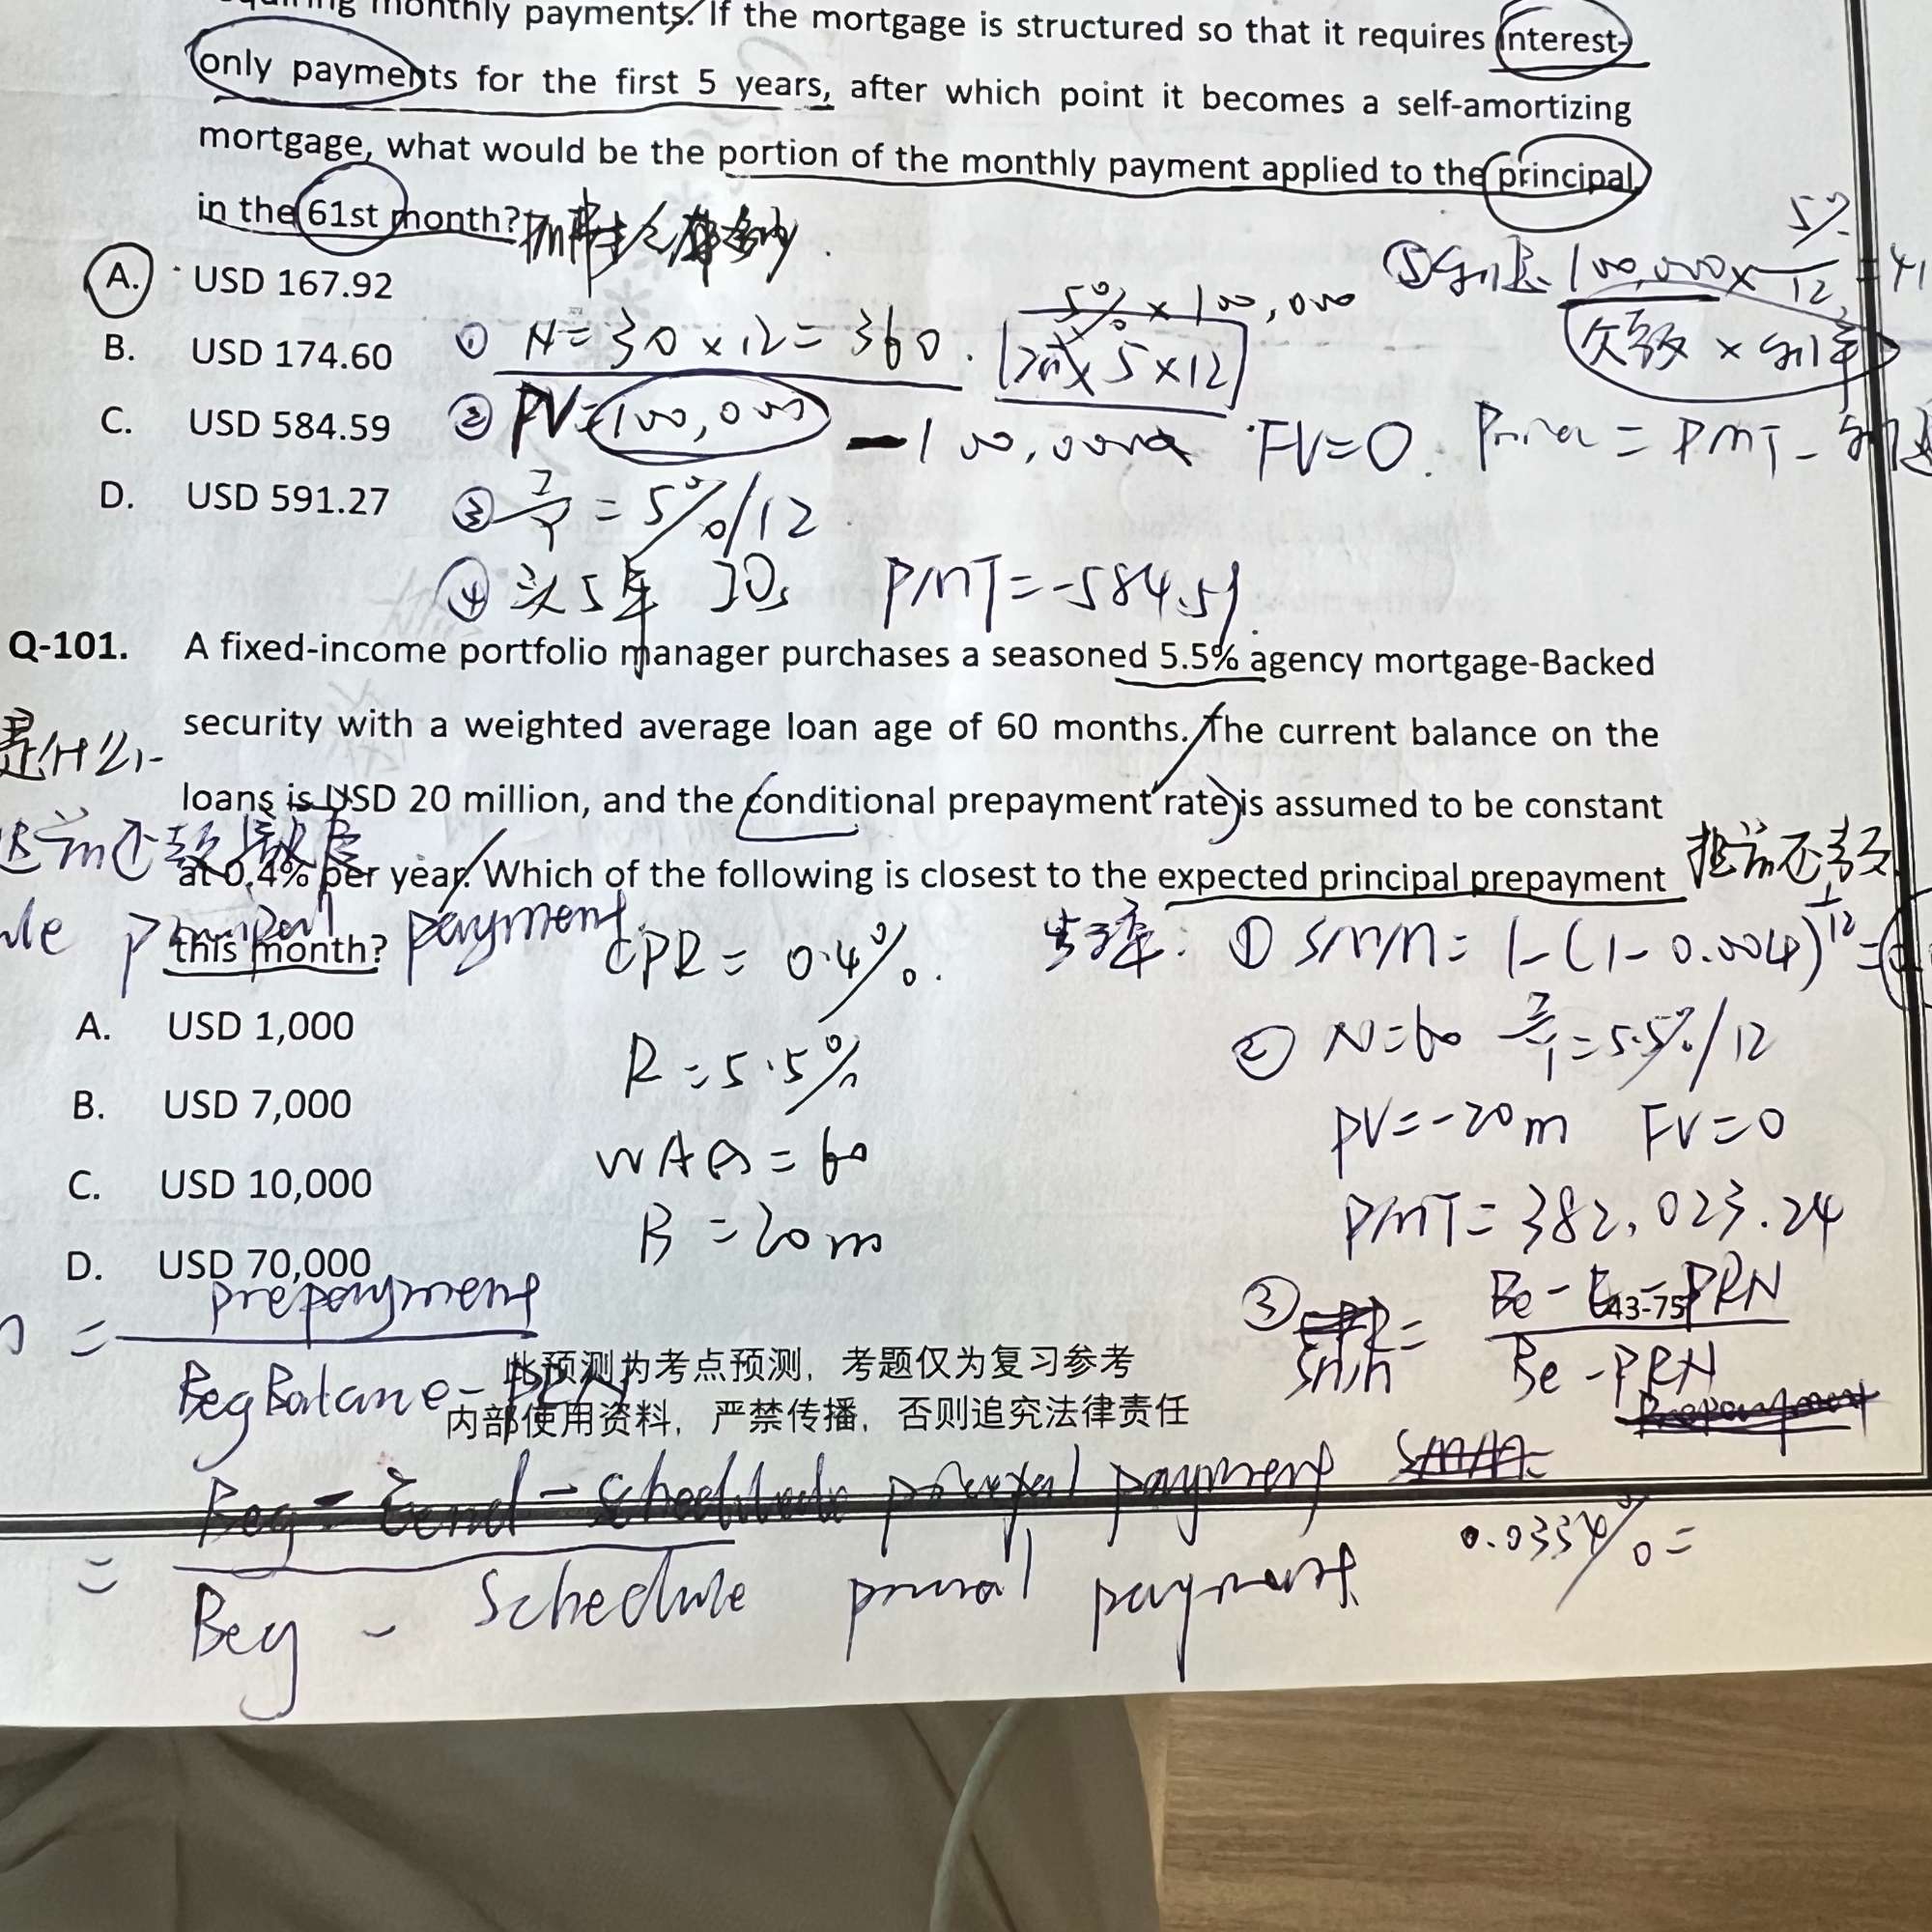 monthly payments. If the mortgage is structured so that it requires interest-
only payments for the first 5 years, after which point it becomes a self-amortizing
mortgage, what would be the portion of the monthly payment applied to the principal
in the 61st month?
A. USD 167.92
B. USD 174.60
C. USD 584.59
D. USD 591.27
5%
100,000 × 12
5% × 100,000
① N = 30 × 12 = 360
5 × 12
欠款 × 利率
② PV = 100,000
-100,000
FV = 0
= PMT -
③ = 5%/12
④ 头5年 IO
PMT = -584.59
Q-101. A fixed-income portfolio manager purchases a seasoned 5.5% agency mortgage-Backed
security with a weighted average loan age of 60 months. The current balance on the
是什么
loans is USD 20 million, and the conditional prepayment rate is assumed to be constant
at 0.4% per year. Which of the following is closest to the expected principal prepayment
提前还款
payment
this month?
CPR = 0.4%.
① SMM = 1-(1-0.004)^1/12 =
A. USD 1,000
R = 5.5%
② N = 60 = 5.5%/12
B. USD 7,000
PV = -20m FV = 0
C. USD 10,000
WAA = 60
PMT = 382,023.24
D. USD 70,000
B = 20m
= prepayment
③ = Be - E - PRN
43-75
Be - PRN
此预测为考点预测，考题仅为复习参考
Beg Balance - PRN
内部使用资料，严禁传播，否则追究法律责任
Beg - End - Schedule payment
0.0334% =
= Beg - Schedule payment